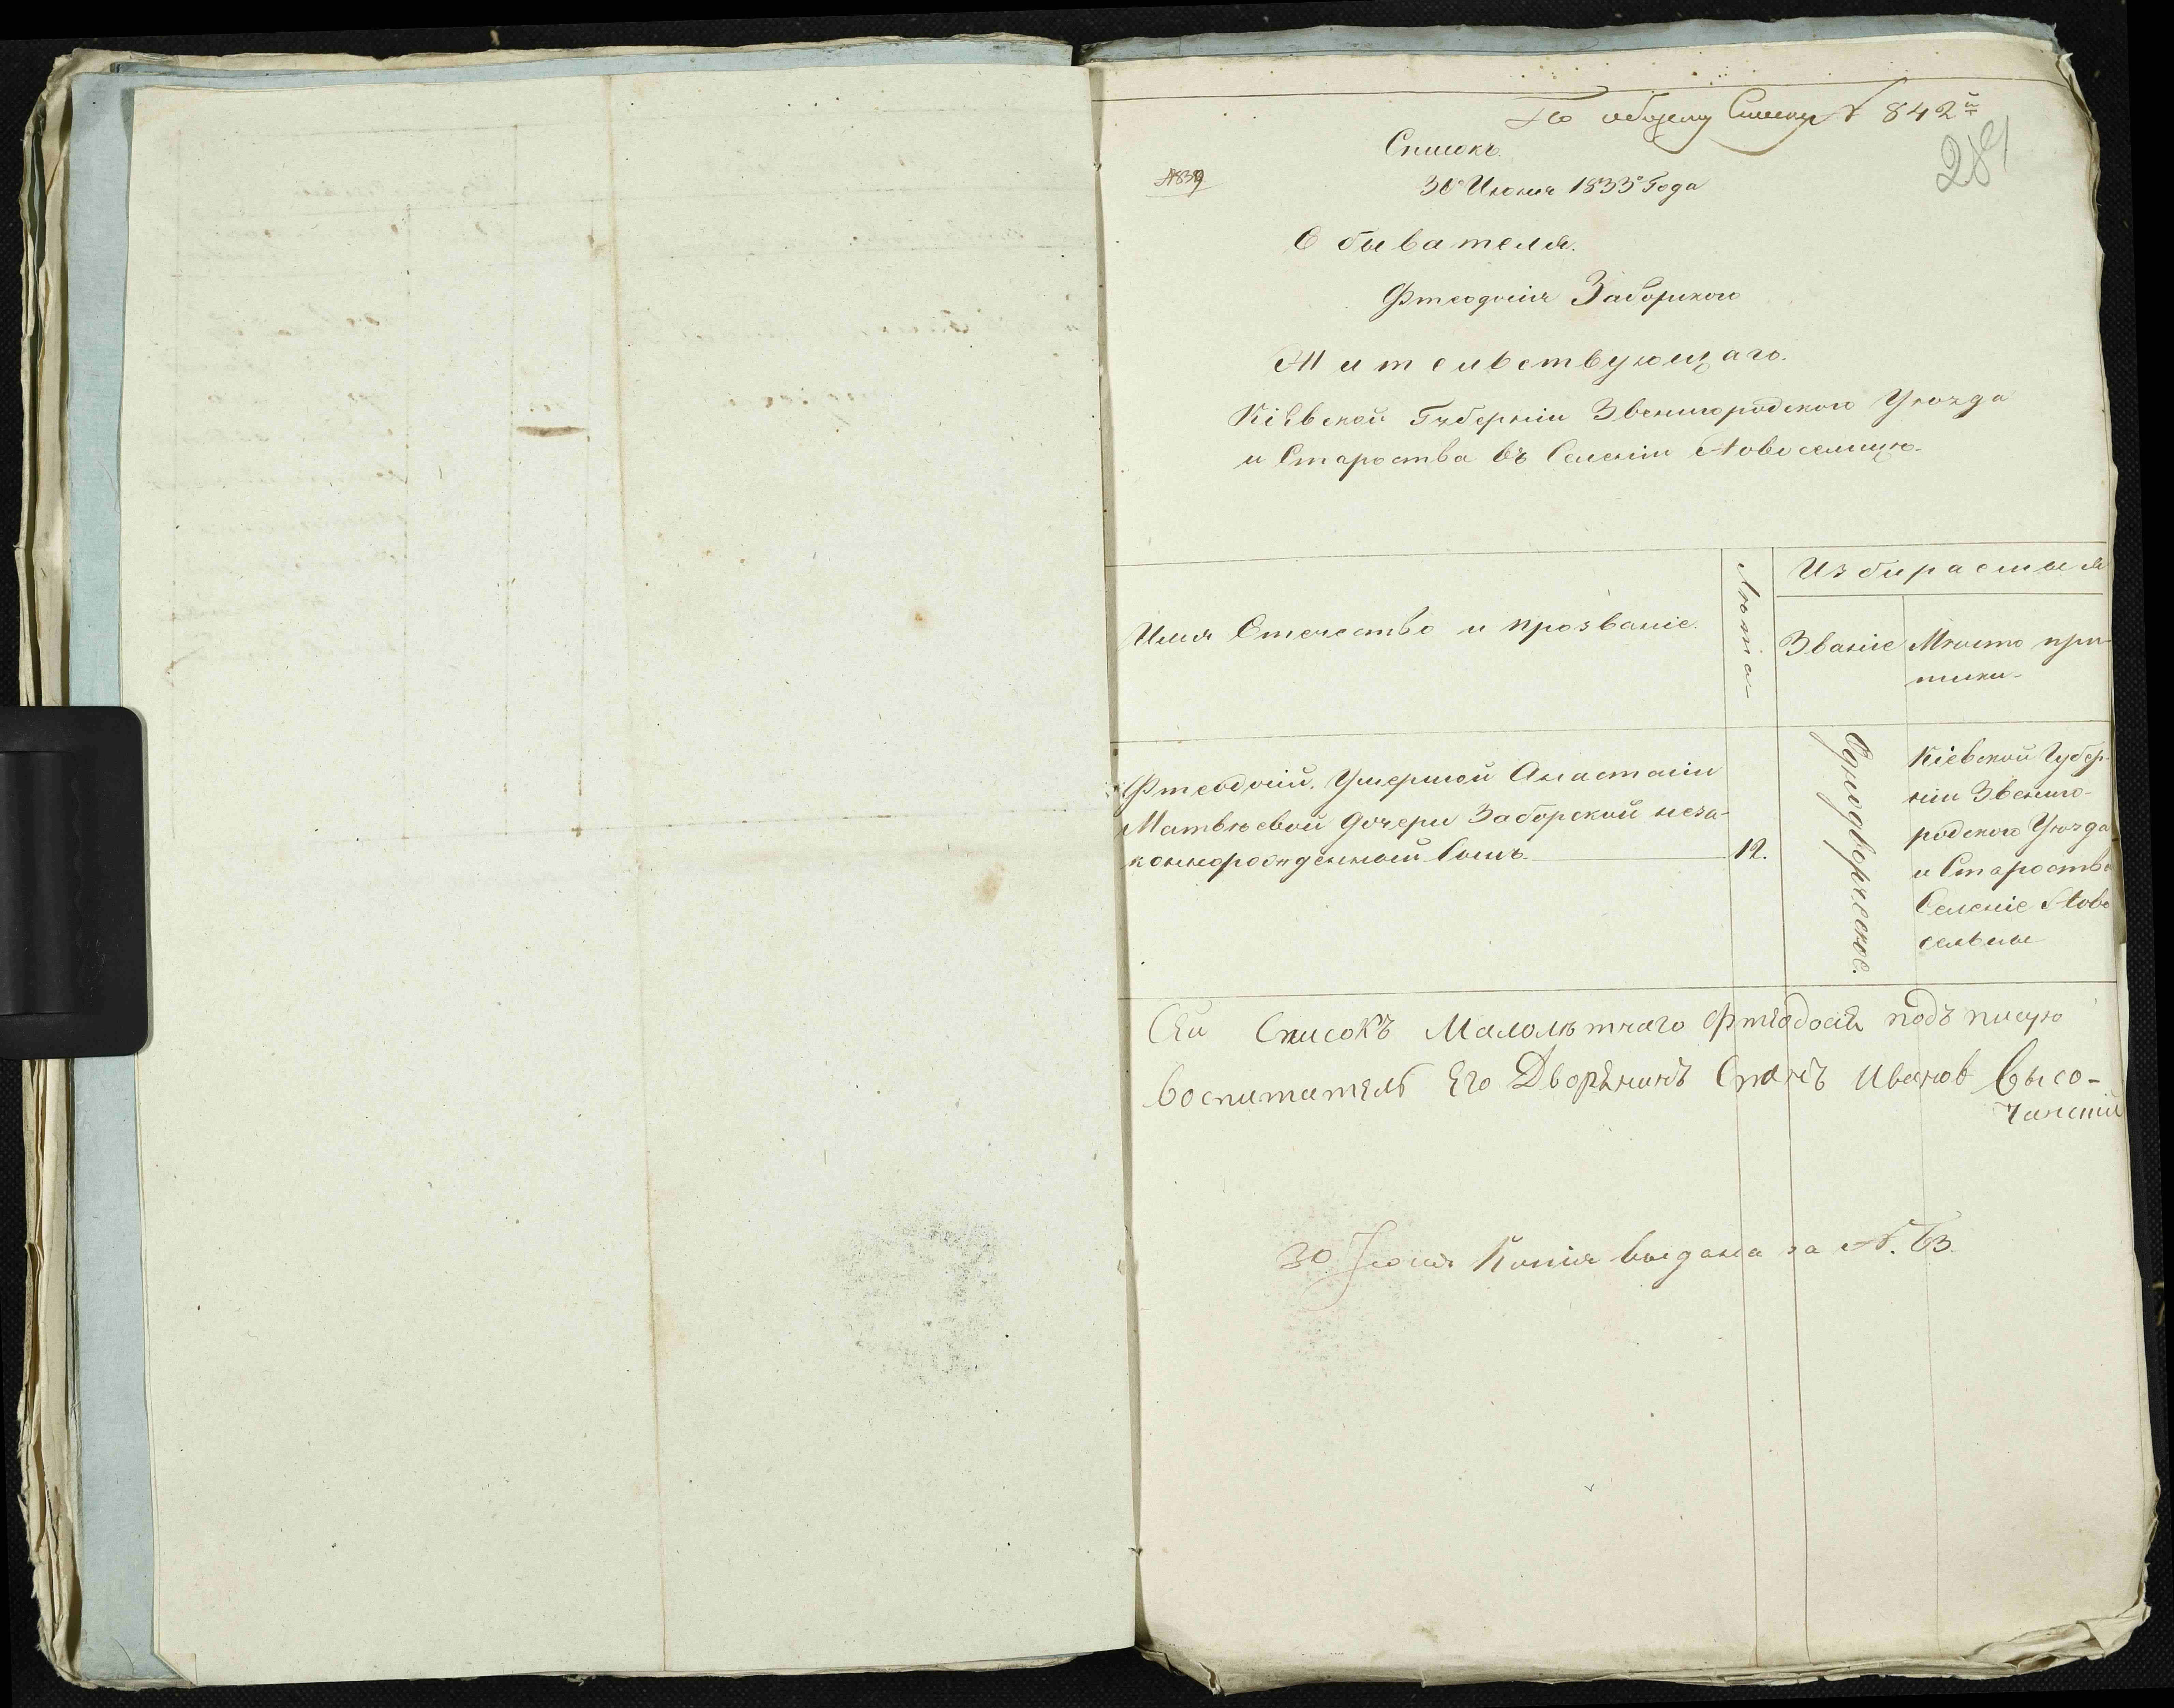 По общему Списку № 842й
289
Списокъ.
№839
30го Июня 1833го Года
Обывателя.
Фтеодосія Заборского
Жительствующаго.
Кіевской Губерніи Звенигородского Уѣзда
и Староства въ Селеніи Новоселицѣ.
Имя Отечество и прозваніе.
Лѣта
Избираемыя
Званіе
Мѣсто при-
писки
Фтеодосій, Умершой Анастасіи
Матвѣевой дочери Заборской неза-
коннорожденный Сынъ.
12.
Однодворческое.
Кіевской Губер-
ніи Звениго-
родского Уѣзда
и Староства
Селеніе Ново
сельцы
Сей Списокъ Малолѣтнаго Фтеодосія подъписую
воспитатель Его Дворянинъ Иванов Высо-
чанскій
30 Іюня Копія выдана за №. 63.